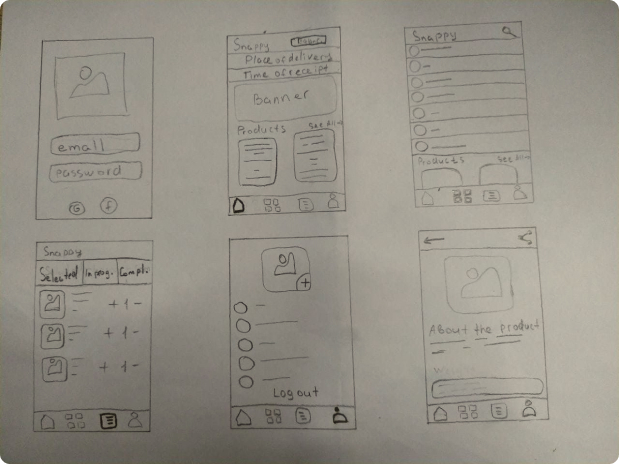 email
password
G
f
Snappy
Place of delivery
Time of receipt
Banner
Products See All
Snappy
Products See All
Snappy
Selected In prog. Compl.
+ 1 -
+ 1 -
+ 1 -
+
Log out
About the product